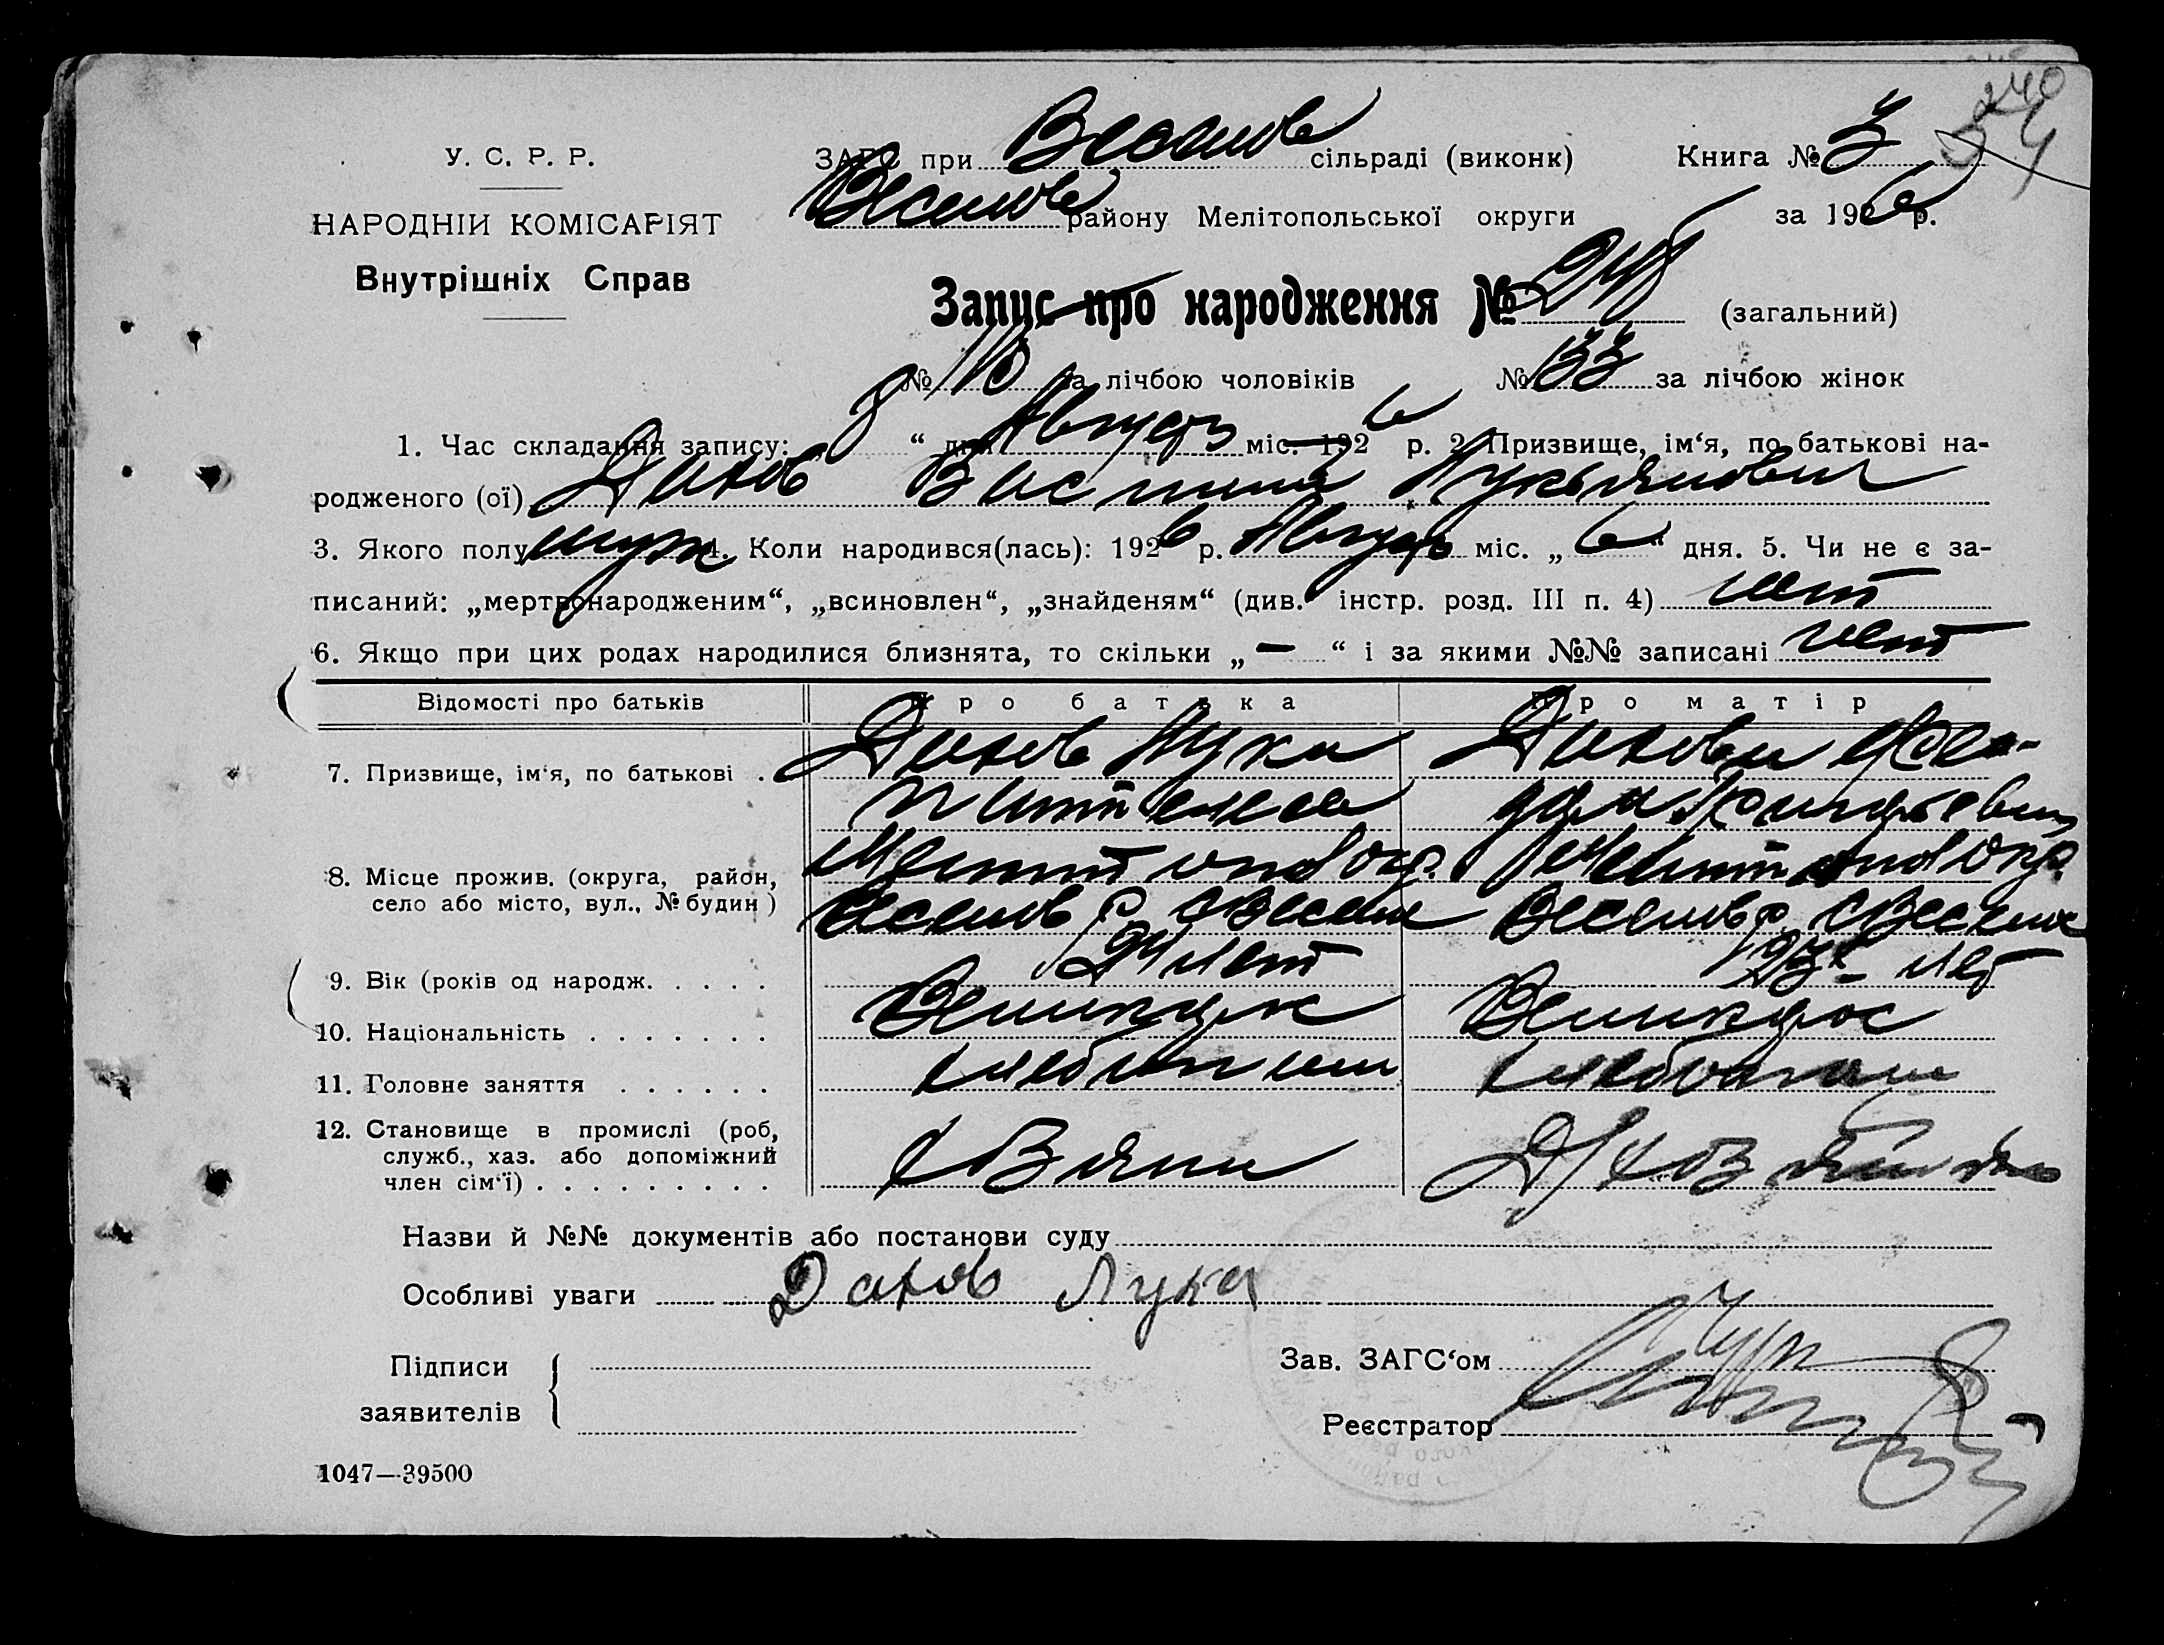 240
У. С. Р. Р.
НАРОДНІЙ КОМІСАРІЯТ
Внутрішніх Справ
ЗАГС при Веселов сільраді (виконк) Книга № 3
Веселов району Мелітопольської округи за 1926 р.
Запис про народження № (загальний)
№ за лічбою чоловіків № 133 за лічбою жінок
1. Час складання запису: „8“ дня Август міс. 1926 р. 2. Призвище, ім‘я, по батькові на-
родженого (ої) Дахов Василий Лукьянович
3. Якого полу муж 4. Коли народився(лась): 1926 р. Август міс. „6“ дня. 5. Чи не є за-
писаний: „мертвонародженим“, „всиновлен“, „знайденям“ (див. інстр. розд. III п. 4) нет
6. Якщо при цих родах народилися близнята, то скільки „—“ і за якими №№ записані нет
Відомості про батьків Про батька Про матір
7. Призвище, ім‘я, по батькові . Дахов Лука Дахова
8. Місце прожив. (округа, район, Мелитопол окр. Мелитопол окр.
село або місто, вул., № будин) Веселов р. с Веселое Веселов р. с Веселое
9. Вік (років од народж. . . . . 24 лет 23 лет
10. Національність . . . . . . . Великорос Великорос
11. Головне заняття . . . . . . хлебопаш хлебопаш
12. Становище в промислі (роб,
служб., хаз. або допоміжний
член сім‘ї) . . . . . . . . . хозяин
Назви й №№ документів або постанови суду
Особливі уваги Дахов Лука
Підписи
заявителів
Зав. ЗАГС‘ом
Реєстратор
1047—39500